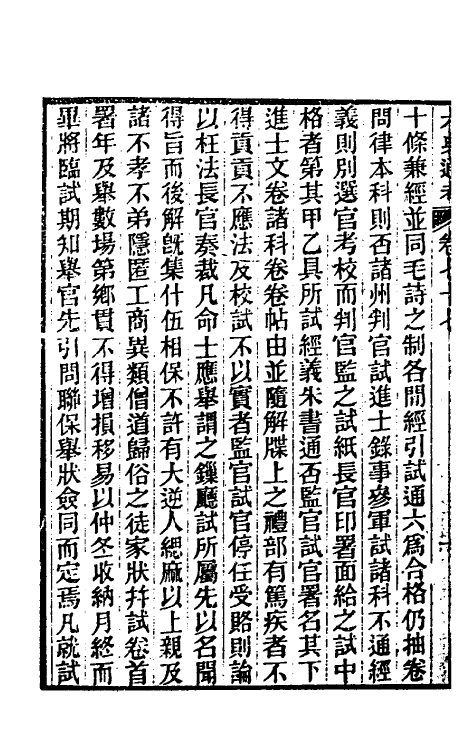 十條兼經並同毛詩之制各閒經引試通六爲合格仍抽卷
問律本科則否諸州判官試進士錄事參軍試諸科不通經
義則別選官考校而判官監之試紙長官印署面給之試中
格者第其甲乙具所試經義朱書通否監官試官署名其下
進士文卷諸科卷卷帖由並隨解牒上之禮部有篤疾者不
得貢貢不應法及校試不以實者監官試官停任受賂則論
以枉法長官奏裁凡命士應舉謂之鏁廳試所屬先以名聞
得旨而後解旣集什伍相保不許有大逆人緦麻以上親及
諸不孝不弟隱匿工商異類僧道歸俗之徒家狀幷試卷首
署年及舉數場第鄉貫不得增損移易以仲冬收納月終而
畢將臨試期知舉官先引問聯保舉狀僉同而定焉凡就試